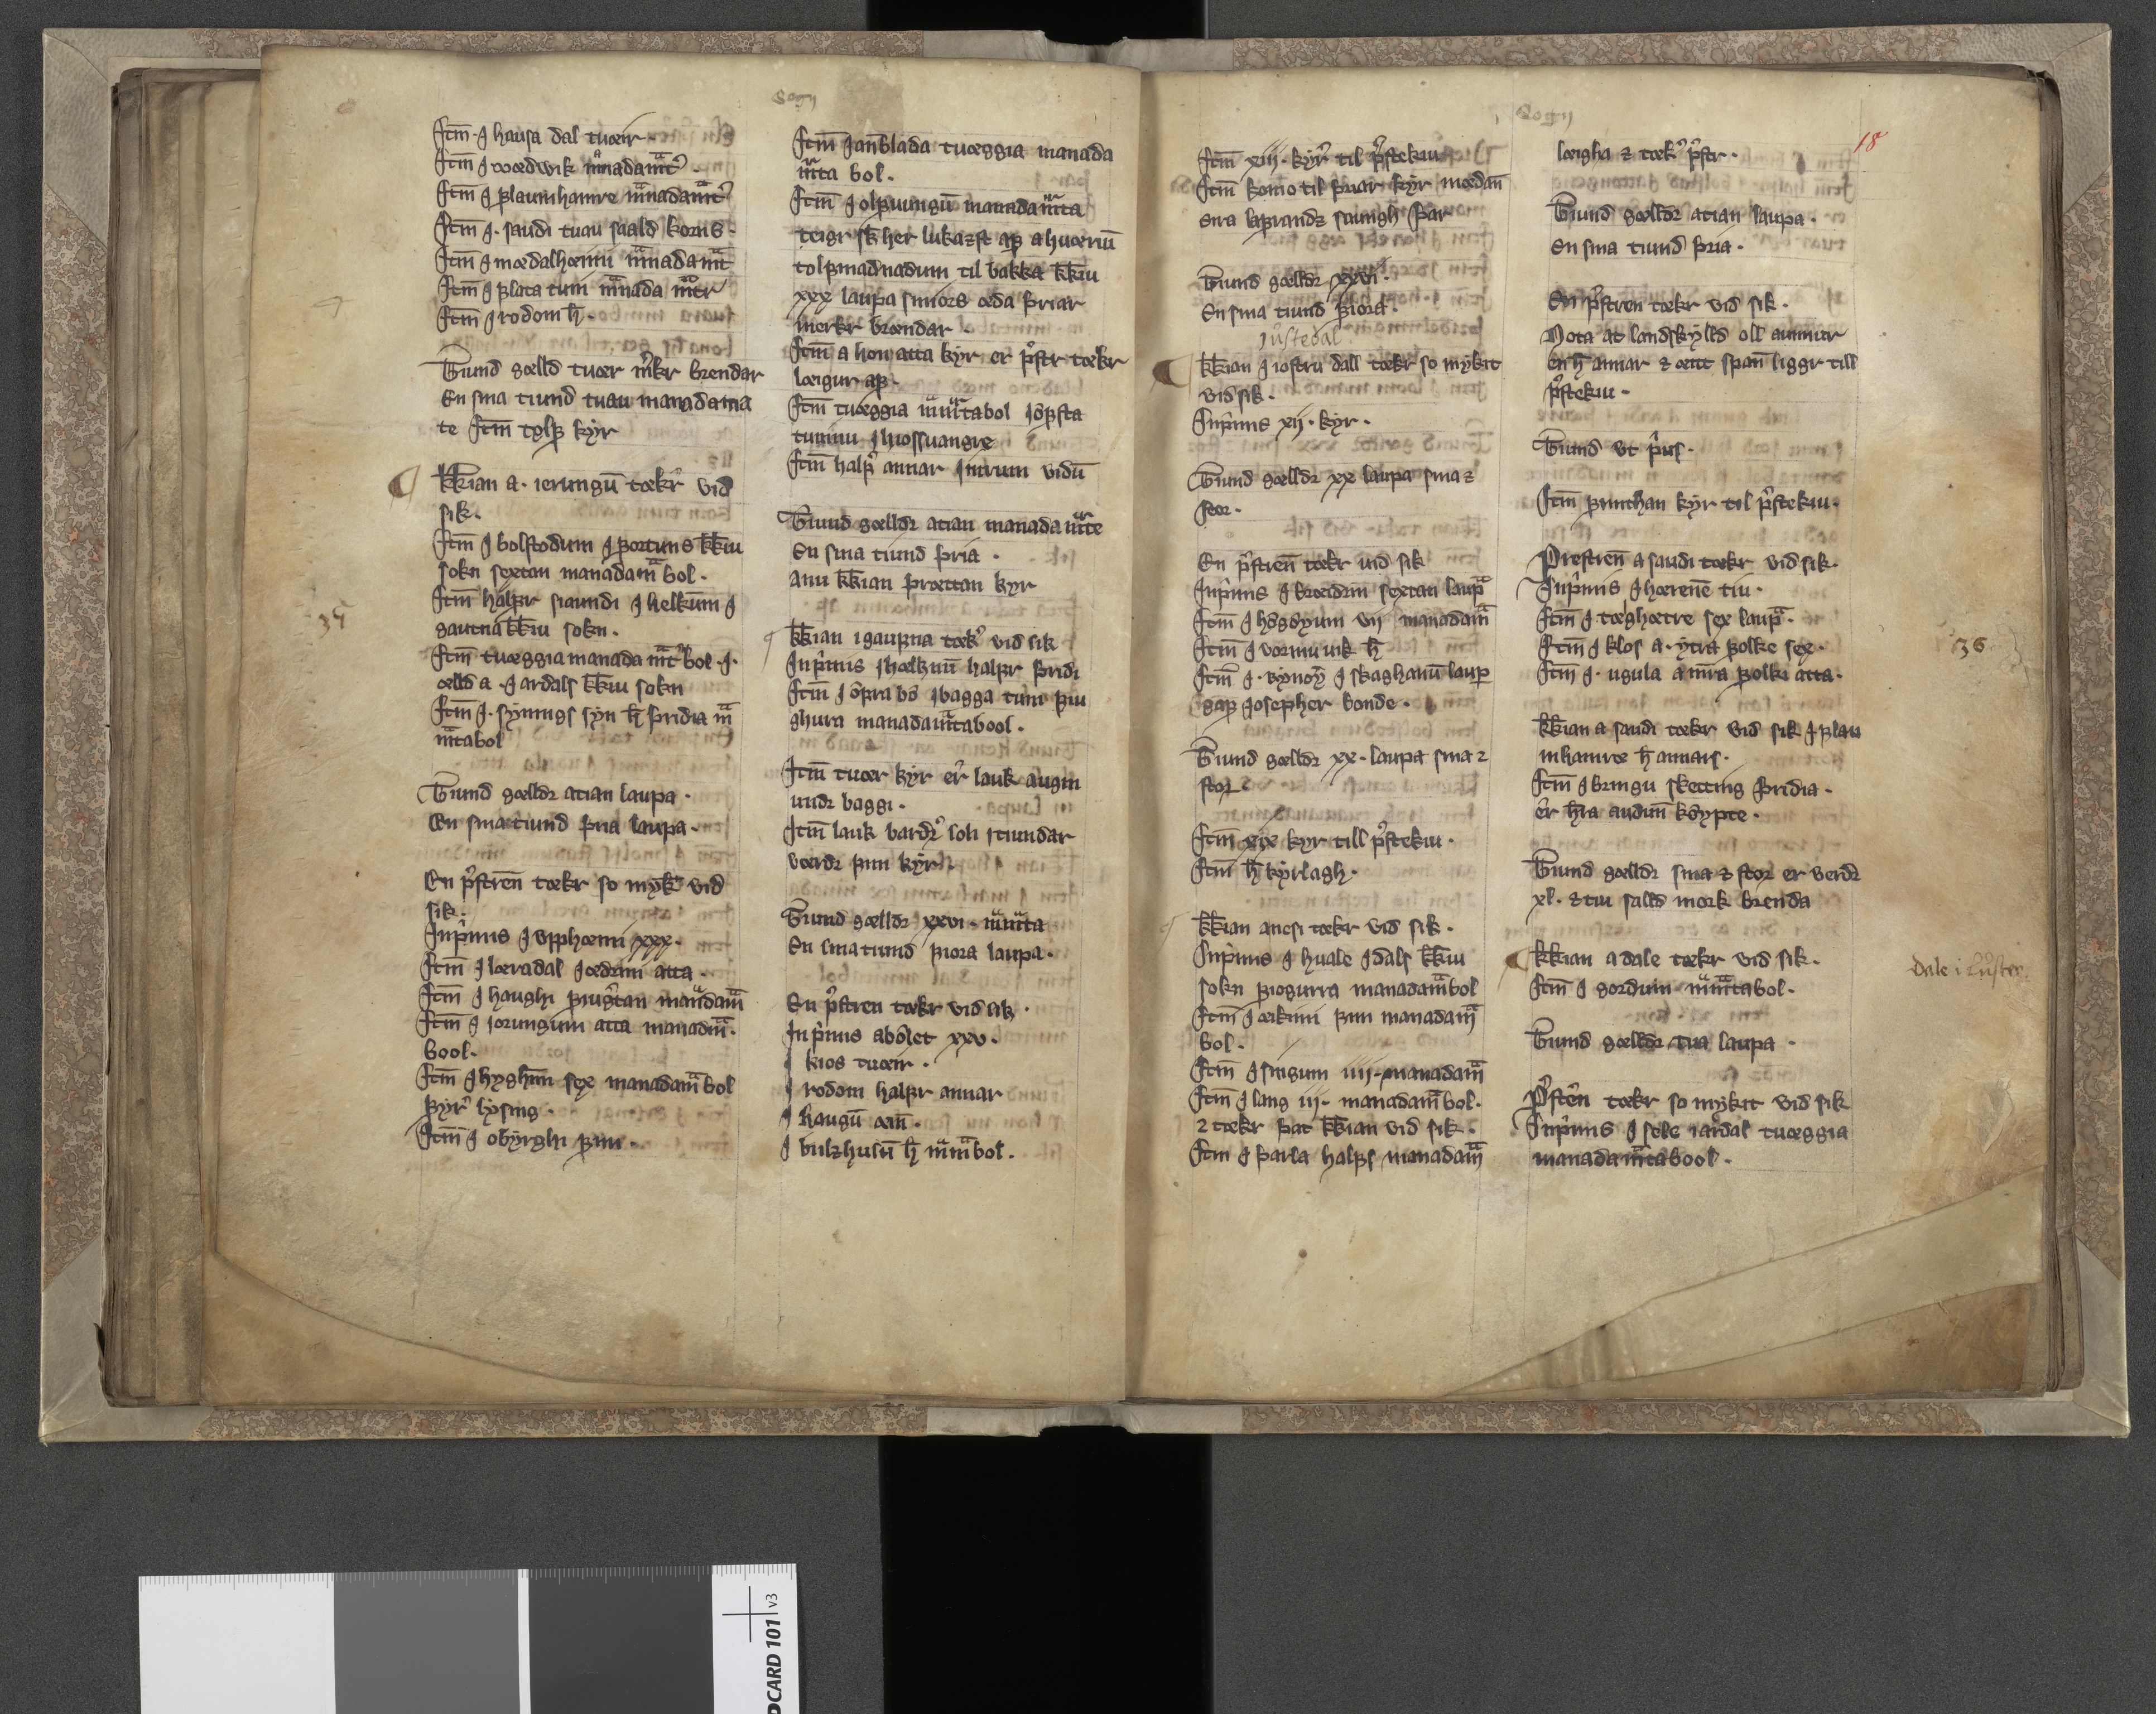 Sogn
Itm̄ · J hausa dal tuæir ·
Itm̄ J wædwik mͣnadam̄tͬ
Itm̄ J flaumhamre m̄nadam̄tͬ
Itm̄ J · saudi tuau saald korns ·
Itm̄ J mædalhæimi m̄nadam̄t
Itm̄ J flata tuni m̄nada m̄tr
Itm̄ J rodom h̄ ·
Tiund gælld tuær m̄kr brendar
En sma tiund tuau manadama
te Itm̄ tolf kyr
kk̄ian a · ierungū tækr vid
sik ·
Itm̄ J bolstodum J fortuns kk̄iu
sokn sextan manadam̄ bol ·
Itm̄ halfr siaundi J helkum J
gautna kk̄iu sokn ·
Itm̄ tuæggia manada m̄tͬ bol · J ·
ælld a · J ardals kk̄iu sokn
Itm̄ J · synings syn h̄ þridia m̄
m̄tabol
Tiund gælldr atian laupa ·
En sma tiund þria laupa ·
En p̉stren̄ tækr so myk̄ vid
sik ·
Inp̉mis J vpphæimi xxx ·
Itm̄ J læradal J ædrini atta ·
Itm̄ J haughi fiug̉tan manadam̄
Itm̄ J iorungum atta manadm̄ ·
bool ·
Itm̄ J hyghini sex manadam̄ bol
fyrͬ lysing ·
Itm̄ J obyrghi fim ·
35
Itm̄ J an̄blada tuæggia manada
m̄ta bol ·
Itm̄ J olfuungū manadam̄ta
teigr sk̄ her lukazst af ahuoriū
tolfmadnadum til bakka kk̄iu
xxx laupa smiors æda þriar
merkr brændar ·
Itm̄ a hon atta kyr er p̉str tækr
læigur af ·
Itm̄ tuæggia m̄m̄tabol J ofsta
tuninu J huossuangre
Itm̄ halfͬ annar J nirum vidū
Tiund gælldr atian manada m̄te
En sma tiund þria ·
anu kk̄ian þrættan kyr
kk̄ian i gaupna tækͬ vid sik
Inp̉mis J hælknū halfr þridi
Itm̄ J ofra bø J bagga tuni fiu
ghura manadam̄tabool ·
Itm̄ tuær kyr eͬr lauk augm
undr baggi ·
Itm̄ lauk bardrͦ soli i tiundar
værdr fim kyr ·
Tiund gælldr xxvi · m̄m̄ta
En sma tiund fiora laupa ·
En p̉stren tækr vid sik ·
Inp̉mis a bølet xxv ·
J kios tuæir ·
J rodom halfr annar
J haugū æin̄ ·
J bulzhusū h̄ m̄m̄bol ·
Sogn
18
Itm̄ xiii · kyrͬ til p̉stekiu
Itm̄ komo til fiuar kyr mædan̄
sira lafrandz saungh þar
Tiund gælldr xxvi ·
En sma tiund fiora ·
Justedal
kk̄ian J iostru dall tækr so mykit
vid sik ·
Inp̉mis xij · kyr ·
Tiund gælldr xx laupa sma z
stor ·
En p̉stren̄ tækr uid sik
Inp̉mis J brædrini sextan laup̄
Itm̄ J høgøyum vij manadam̄
Itm̄ J vormu uik h̄
Itm̄ J · vynoy J skaghanū laup
gaf Josepher bonde ·
Tiund gælldr xx · laupa sma z
stor ·
Itm̄ xix kyr till p̉stekiu ·
Itm̄ h̄ kyrlagh ·
kk̄ian anesi tækr vid sik ·
Inp̉mis J huale J dals kk̄iu
sokn fiogurra manadam̄bol
Itm̄ J æikini fim manadam̄
bol ·
Itm̄ J snigum iiij · manadam̄
Itm̄ J lang iij · manadam̄ bol ·
z tækr þat kk̄ian vid sik ·
Itm J farla halfs manadam̄
læigha z tækͬ p̉str ·
Tiund gælldr atian laupa ·
En sma tiund þria ·
En p̉stren tækr vid sik ·
Nota at landskylld oll aunnur
en h̄ annar z æitt span̄ liggr till
p̉stekiu ·
Tiund vt p̉us ·
Itm̄ fimthan kyr til p̉stekiu ·
Prestren̄ a saudi tækr vid sik ·
Inp̉mis J hærene tiu ·
Itm̄ J tæghætre sex laup̄ ·
Itm̄ J klos a · ytra folke sex ·
Itm̄ J · ugula a in̄ra folki atta ·
36
kk̄ian a saudi tækr vid sik J flau
mhamre h̄ annars ·
Itm̄ J bringu sketting þridia ·
er hr̄a audun̄ køypte ·
Tiund gælldr sma z stor er verdr
xl · z tiu salld mork brenda
kk̄ian a dale tækr vid sik ·
Dale i Luster.
Itm̄ J gordum m̄m̄tabol ·
Tiund gælldr tua laupa ·
P̉stên tækr so mykit vid sik
Inp̉mis J sele i ardal tuæggia
manadam̄tabool ·